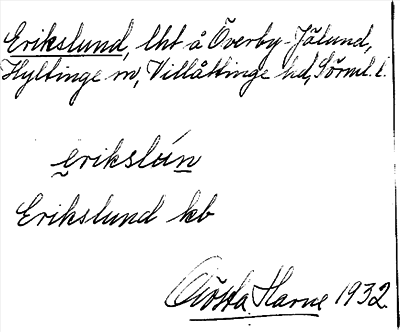 Erikslund, lht å Överby-Jälund,
Hyltinge sn, Villåttinge hd, Sörml. l.
erikslún
Erikslund kb
Gösta Harne 1932.